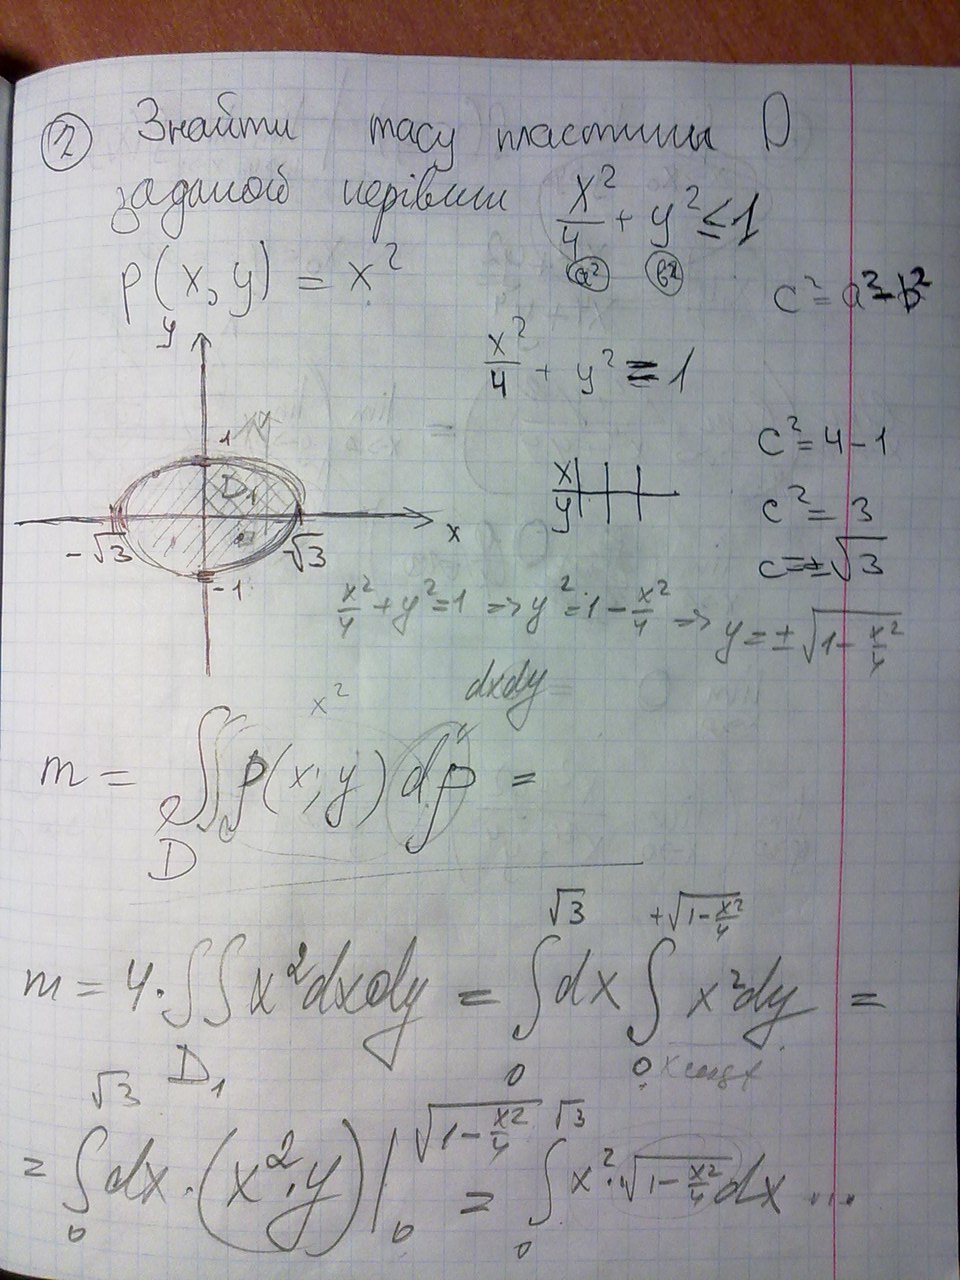 ② Знайти масу пластини D
заданой нерівнин x²/4 + y² ≤ 1
a² b²
ρ(x, y) = x²
c² = a² - b²
x²/4 + y² = 1
c² = 4 - 1
x
y
c² = 3
c = ±√3
y
1
D₁
-√3 √3 x
-1
x²/4 + y² = 1 => y² = 1 - x²/4 => y = ±√(1 - x²/4)
x² dxdy
m = ∬_D ρ(x; y) dρ =
m = 4·∬_{D₁} x²dxdy = ∫_0^{√3} dx ∫_0^{+√(1-x²/4)} x²dy =
= ∫_0^{√3} dx·(x²·y)|_0^{√(1-x²/4)} = ∫_0^{√3} x²·√(1-x²/4) dx ...